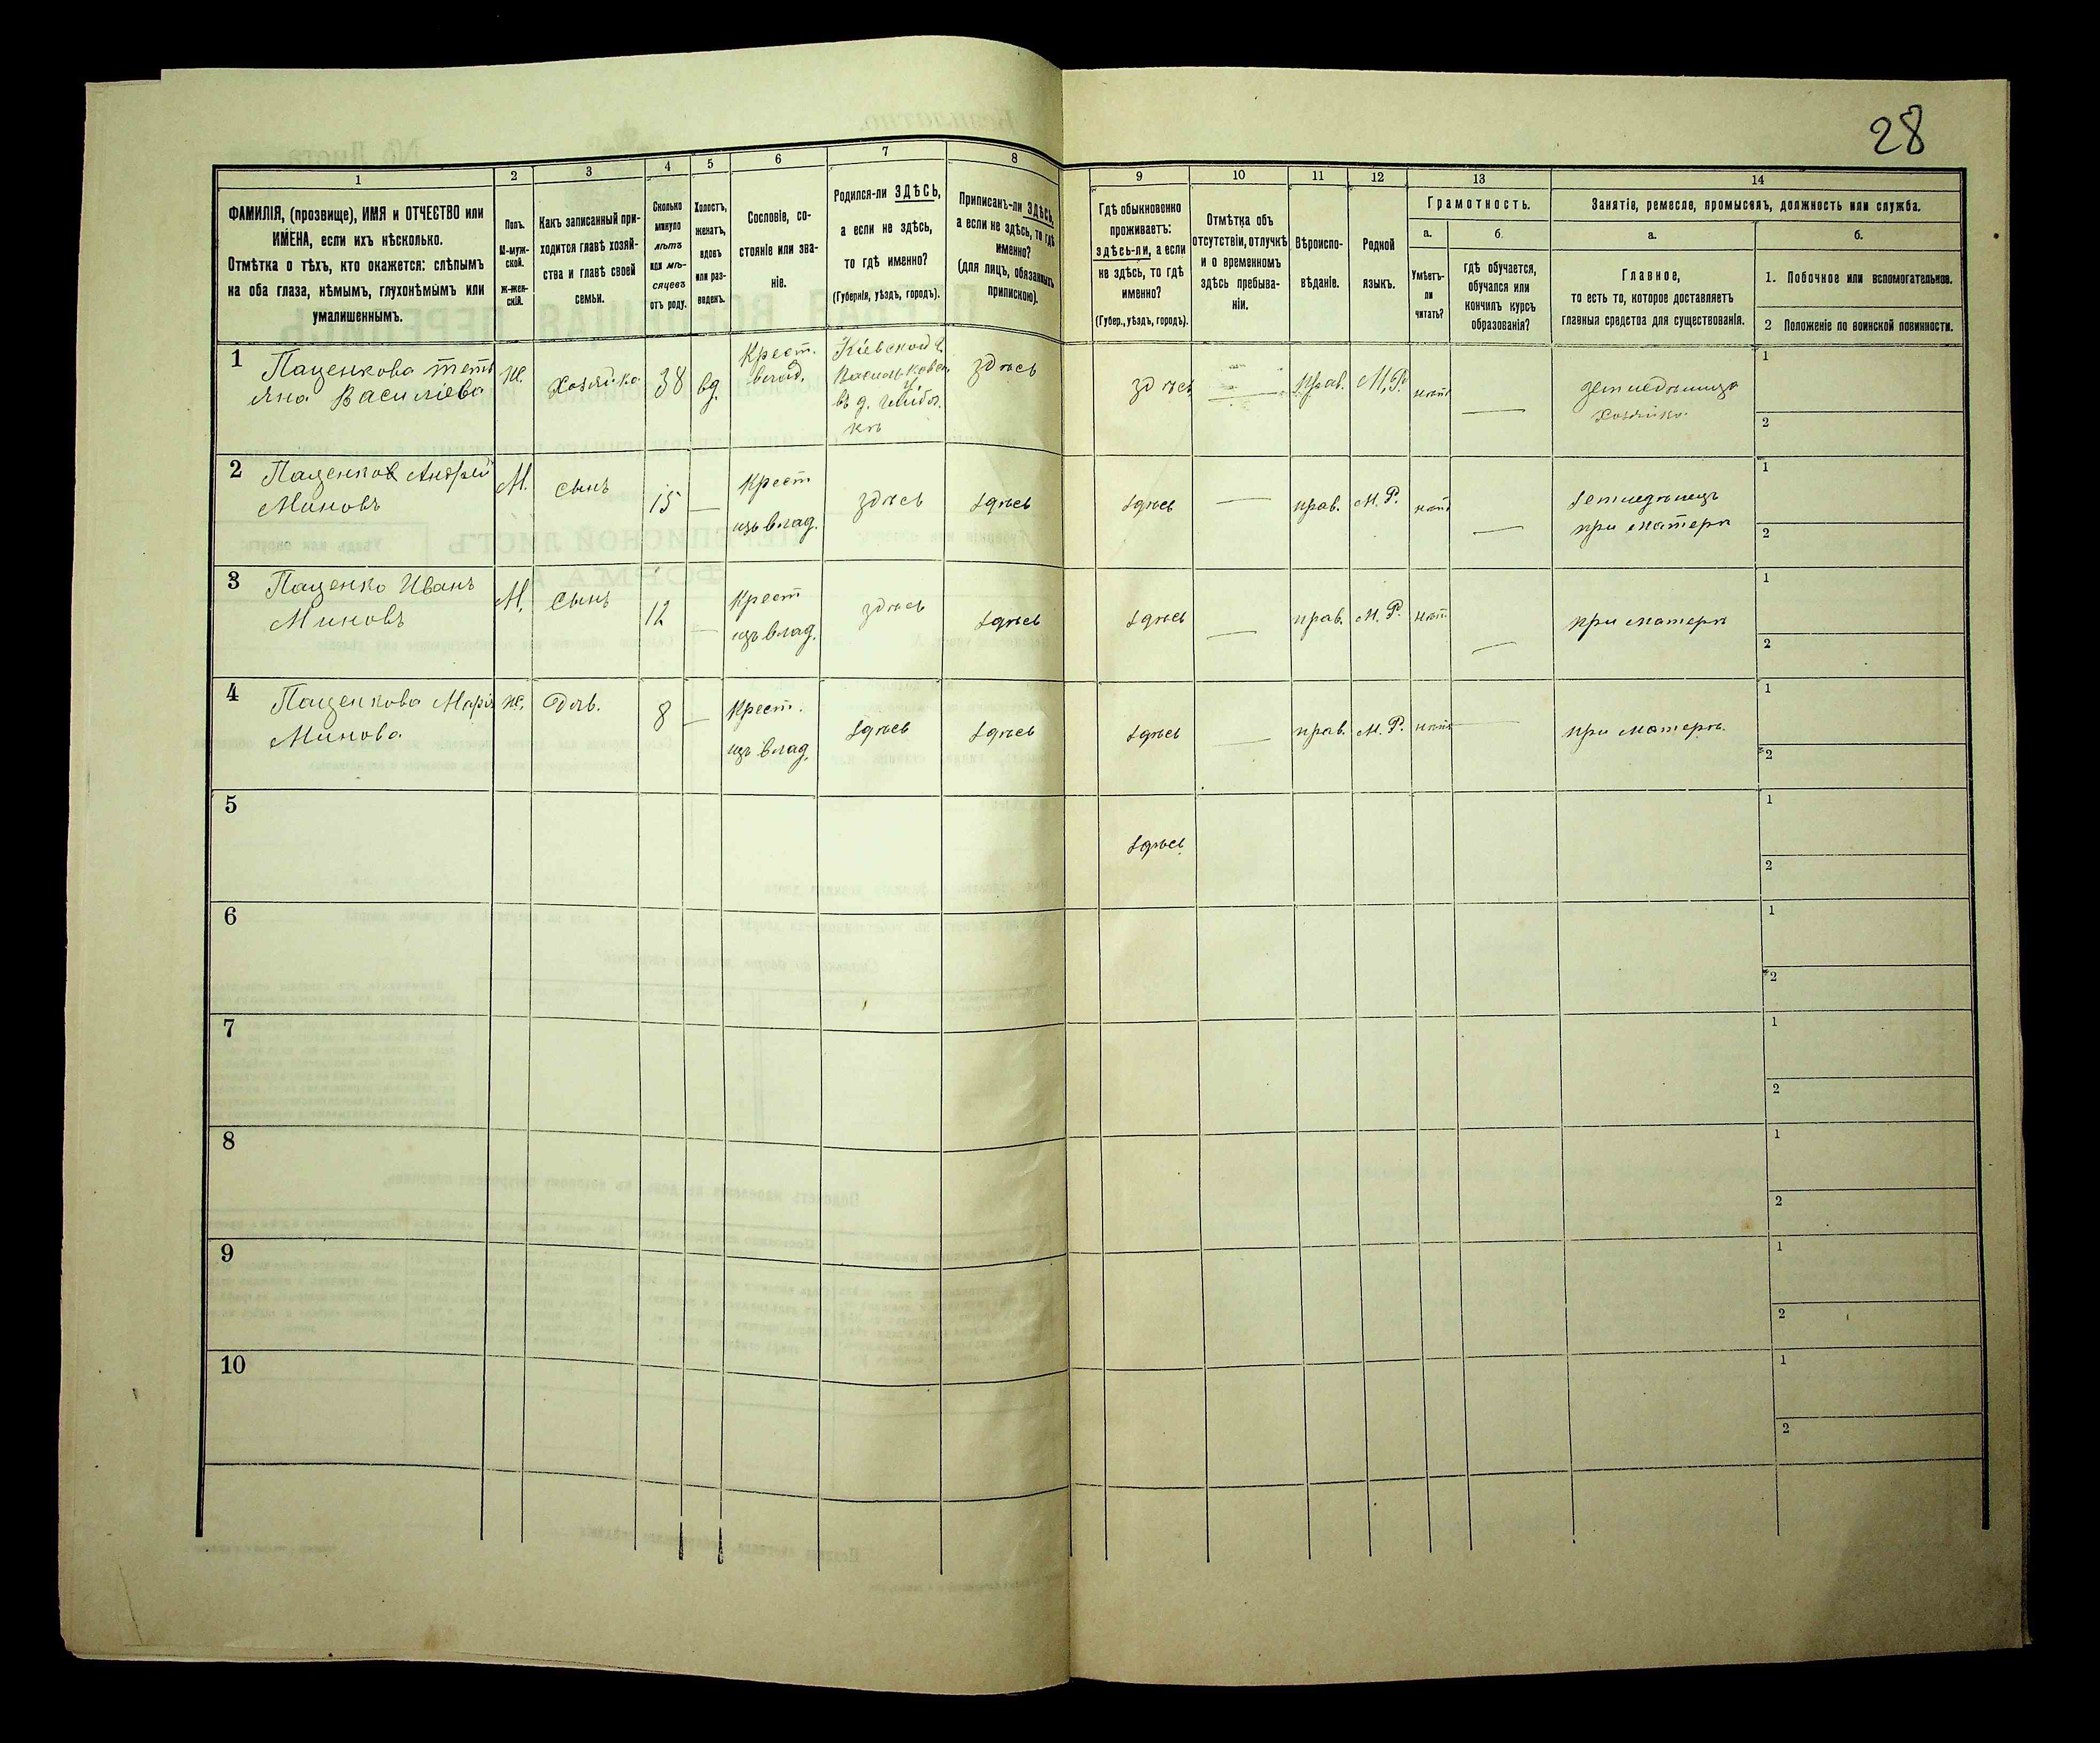 28
1
2
3
4
5
6
7
8
9
10
11
12
13
14
ФАМИЛІЯ, (прозвище), ИМЯ и ОТЧЕСТВО или
ИМЕНА, если ихъ нѣсколько.
Отмѣтка о тѣхъ, кто окажется: слѣпымъ
на оба глаза, нѣмымъ, глухонѣмымъ или
умалишеннымъ.
Полъ.
М-муж-
ской.
Ж-жен-
скій.
Какъ записанный при-
ходится главѣ хозяй-
ства и главѣ своей
семьи.
Сколько
минуло
лѣтъ
или мѣ-
сяцевъ
отъ роду.
Холостъ,
женатъ,
вдовъ
или раз-
веденъ.
Сословіе, со-
стояніе или зва-
ніе.
Родился-ли ЗДѢСЬ,
а если не здѣсь,
то гдѣ именно?
(Губернія, уѣздъ, городъ).
Приписанъ-ли ЗДѢСЬ,
а если не здѣсь, то гдѣ
именно?
(для лицъ, обязанныхъ
припискою).
Гдѣ обыкновенно
проживаетъ:
здѣсь-ли, а если
не здѣсь, то гдѣ
именно?
(Губер., уѣздъ, городъ).
Отмѣтка объ
отсутствіи, отлучкѣ
и о временномъ
здѣсь пребыва-
ніи.
Вѣроиспо-
вѣданіе.
Родной
языкъ.
Грамотность.
а.
Умѣетъ-
ли
читать?
б.
гдѣ обучается,
обучался или
кончилъ курсъ
образованія?
Занятіе, ремесло, промыселъ, должность или служба.
а.
Главное,
то есть то, которое доставляетъ
главныя средства для существованія.
б.
1. Побочное или вспомогательное.
2 Положеніе по воинской повинности.
1
Паценкова Теть
яна Василіева
Ж.
Хозяйка
38
вд.
Крест.
влад.
Кіевской г.
Васильковск.
у.
въ д.
здѣсь
здѣсь
Прав.
М.Р.
нѣтъ
земледѣлица
хозяйка
1
2
2
Паценков Андрей
Миновъ
М.
сынъ
15
Крест
изъ влад.
здѣсь
здѣсь
здѣсь
прав.
М.Р.
нѣтъ
земледѣлецъ
при матери
1
2
3
Паценко Иванъ
Миновъ
М.
Сынъ
12
Крест
изъ влад.
здѣсь
здѣсь
здѣсь
прав.
М.Р.
нѣтъ
при матери
1
2
4
Паценкова Марія
Минова
ж.
Доч.
8
Крест.
изъ влад.
здѣсь
здѣсь
здѣсь
прав.
М.Р.
нѣтъ
при матери.
1
2
5
здѣсь
1
2
6
1
2
7
1
2
8
1
2
9
1
2
10
1
2